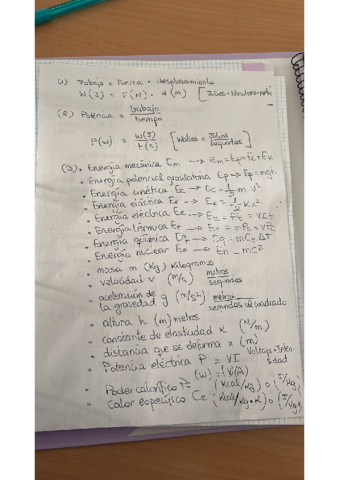 1) Trabajo = Fuerza · desplazamiento
W(J) = F(N) · d(m) [Julios = Newtons · metro
(2) Potencia = trabajo/tiempo
P(w) = W(J)/t(s) [Watios = Julios/segundos]
(3) · Energía mecánica Em → Em = Ep + Ec + Ek
· Energía potencial gravitatoria Ep → Ep = mgh
· Energía cinética Ec → Ec = 1/2 m v²
· Energía elástica Ek → Ek = 1/2 K x²
· Energía eléctrica Ee → Ee = Pt = VIt
· Energía térmica Et → Et = mPc = VPc
· Energía química Eq → Eq = mCe Δt
· Energía nuclear En → En = mc²
· masa m (Kg) Kilogramos
· velocidad v (m/s) metros/segundos
· aceleración de
la gravedad g (m/s²) metros/segundos al cuadrado
· altura h (m) metros
· constante de elasticidad K (N/m)
· distancia que se deforma x (m)
· Potencia eléctrica P = VI Voltaje · Inten-
sidad
(w) = (V)(A)
· Poder calorífico Pc (Kcal/Kg) o (J/Kg)
· Calor específico Ce (Kcal/Kg·K) o (J/Kg·K